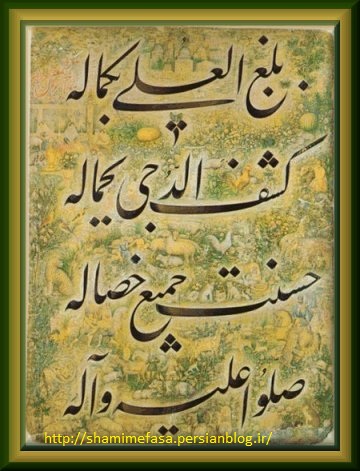 بلغ العلی بکماله
کشف الدجی بجماله
حسنت جمیع خصاله
صلوا علیه وآله
http://shamimefasa.persianblog.ir/